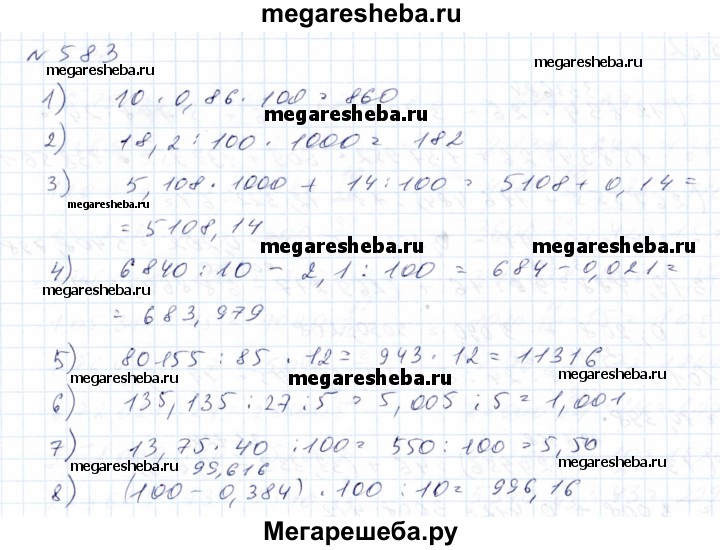 megaresheba.ru
№ 583
megaresheba.ru
megaresheba.ru
1) 10 · 0,86 · 100 = 860
megaresheba.ru
2) 18,2 : 100 · 1000 = 182
megaresheba.ru
3) 5,108 · 1000 + 14 : 100 = 5108 + 0,14 =
megaresheba.ru
= 5108,14
megaresheba.ru megaresheba.ru
4) 6840 : 10 - 2,1 : 100 = 684 - 0,021 =
megaresheba.ru
= 683,979
5) 80155 : 85 · 12 = 943 · 12 = 11316
megaresheba.ru megaresheba.ru megaresheba.ru
6) 135,135 : 27 : 5 = 5,005 : 5 = 1,001
megaresheba.ru
7) 13,75 · 40 : 100 = 550 : 100 = 5,50
megaresheba.ru megaresheba.ru
99,616
8) (100 - 0,384) · 100 : 10 = 996,16
megaresheba.ru
Мегарешеба.ру